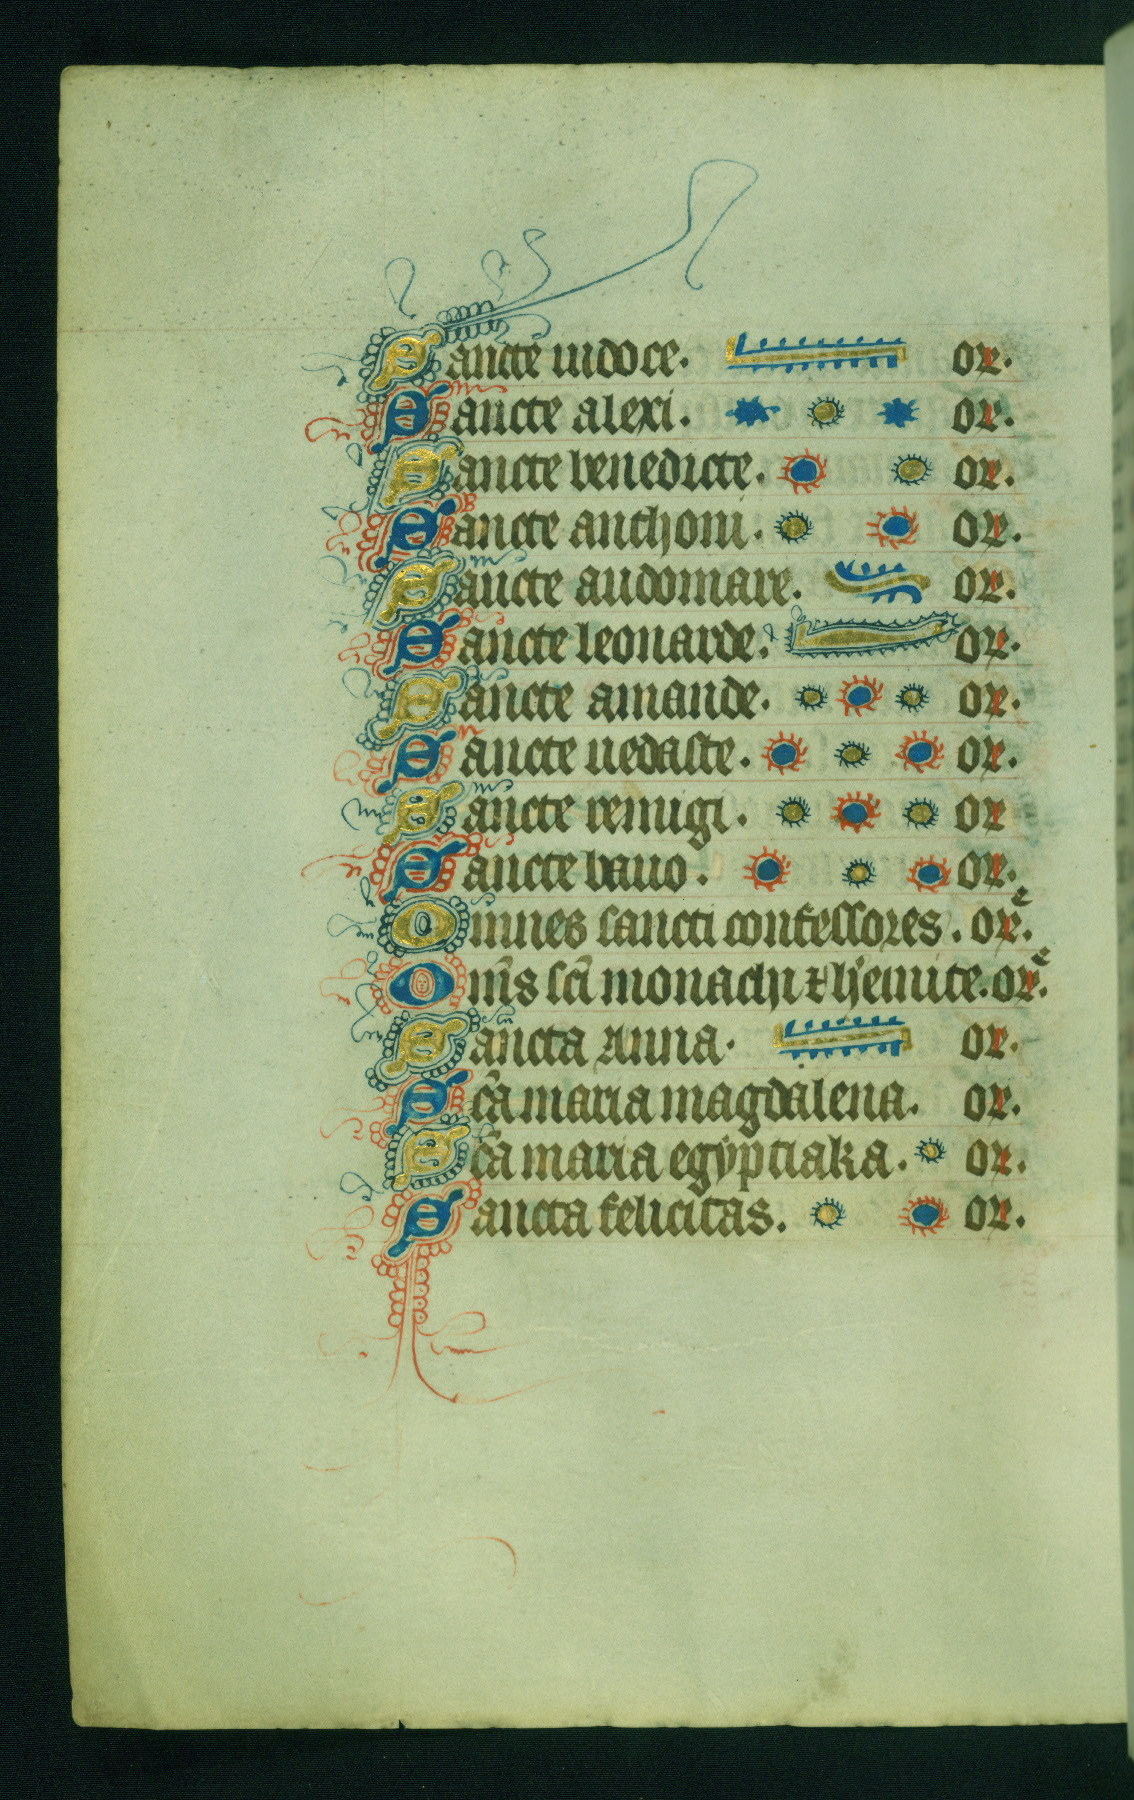 Sancte iudoce. or.
Sancte alexi. or.
Sancte benedicte. or.
Sancte anthoni. or.
Sancte audomare. or.
Sancte leonarde. or.
Sancte amande. or.
Sancte uedaste. or.
Sancte remigi. or
Sancte bauo. or.
Omnes sancti confessores. orᵉ.
Om̄s sc̄i monachi ⁊ h̄emite. orᵉ.
Sancta Anna. or.
Sc̄a maria magdalena. or.
Sc̄a maria egyptiaka. or.
Sancta felicitas. or.